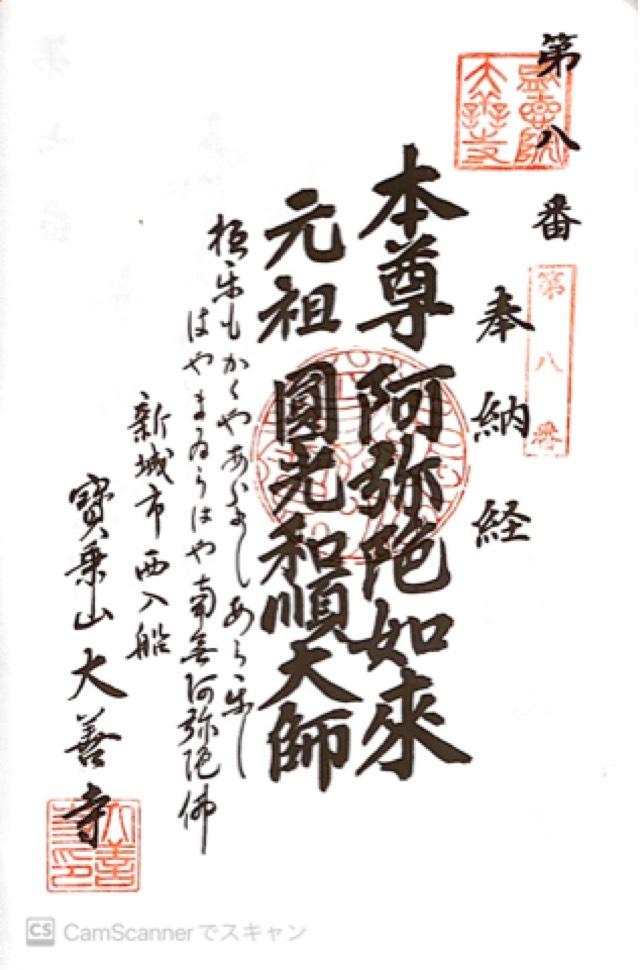 第八番
奉納経
第八番
本尊 阿弥陀如來
元祖 圓光和順大師
極楽もかくやあらましあら楽し
はやまゐらばや南無阿弥陀佛
新城市西入船
寶乗山大善寺
大善寺
CS CamScannerでスキャン